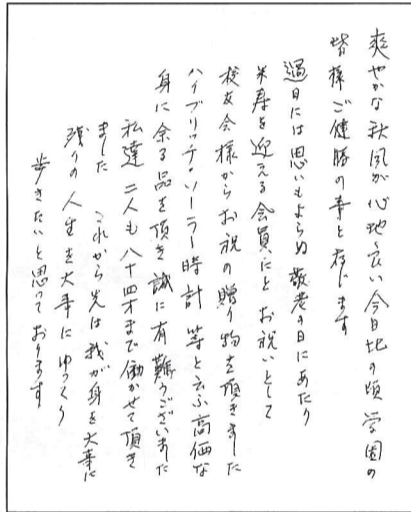 爽やかな秋風が心地良い今日此の頃 学園の
皆様ご健勝の事と存じます
過日には思いもよらぬ敬老の日にあたり
米寿を迎える会員にと お祝いとして
校友会様からお祝の贈り物を頂きました
ハイブリッチ・ソーラー時計 等と云ふ高価な
身に余る品を頂き誠に有難うございました
私達 二人も八十四才まで働かせて頂き
ました これから先は我が身を大事に
残りの人生を大事にゆっくり
歩きたいと思っております